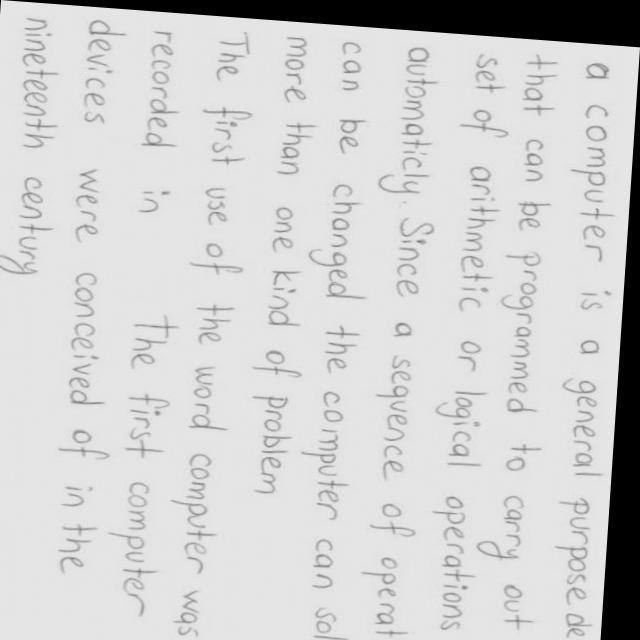 a computer is a general purpose de
that can be programmed to carry out
set of arithmetic or logical operations
automaticly. Since a sequence of operat
can be changed the computer can sol
more than one kind of problem
The first use of the word computer was
recorded in The first computer
devices were conceived of in the
nineteenth century